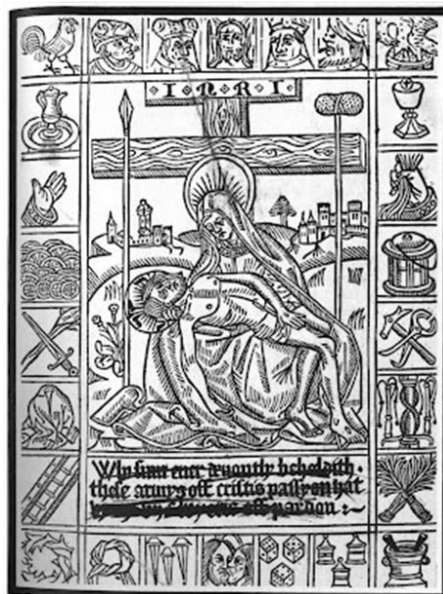 I·N·R·I
Who sum ever devoutly beholdith
these armys off cristis passyon hat
off pardon :~